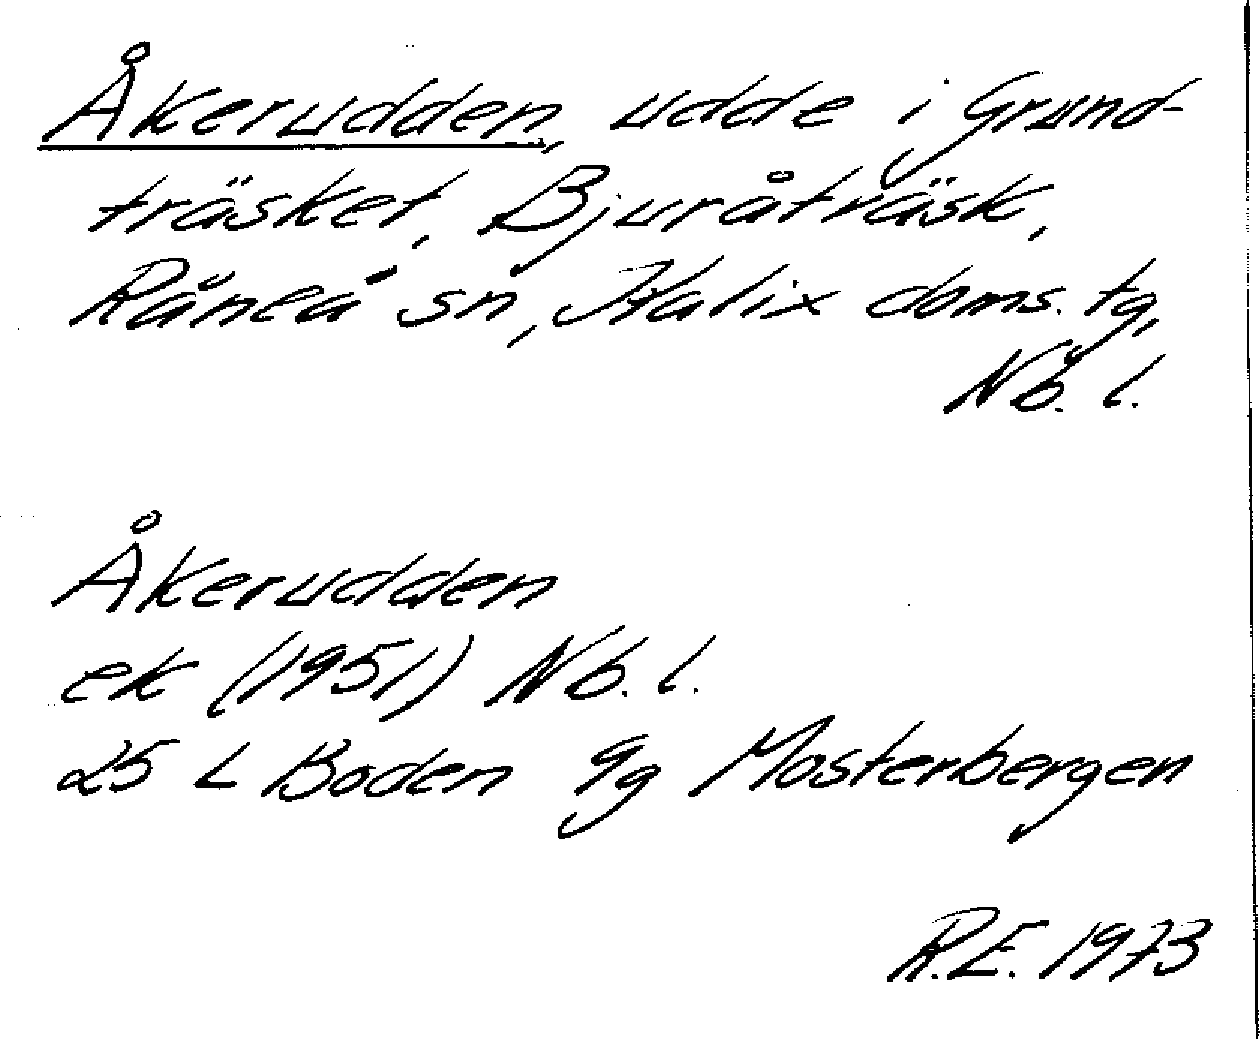 Åkerudden, udde i Grund-
träsket, Bjuråträsk,
Råneå sn, Kalix doms. tg,
Nb. l.
Åkerudden
ek (1951) Nb. l.
25 L Boden 9g Mosterbergen
R.E. 1973